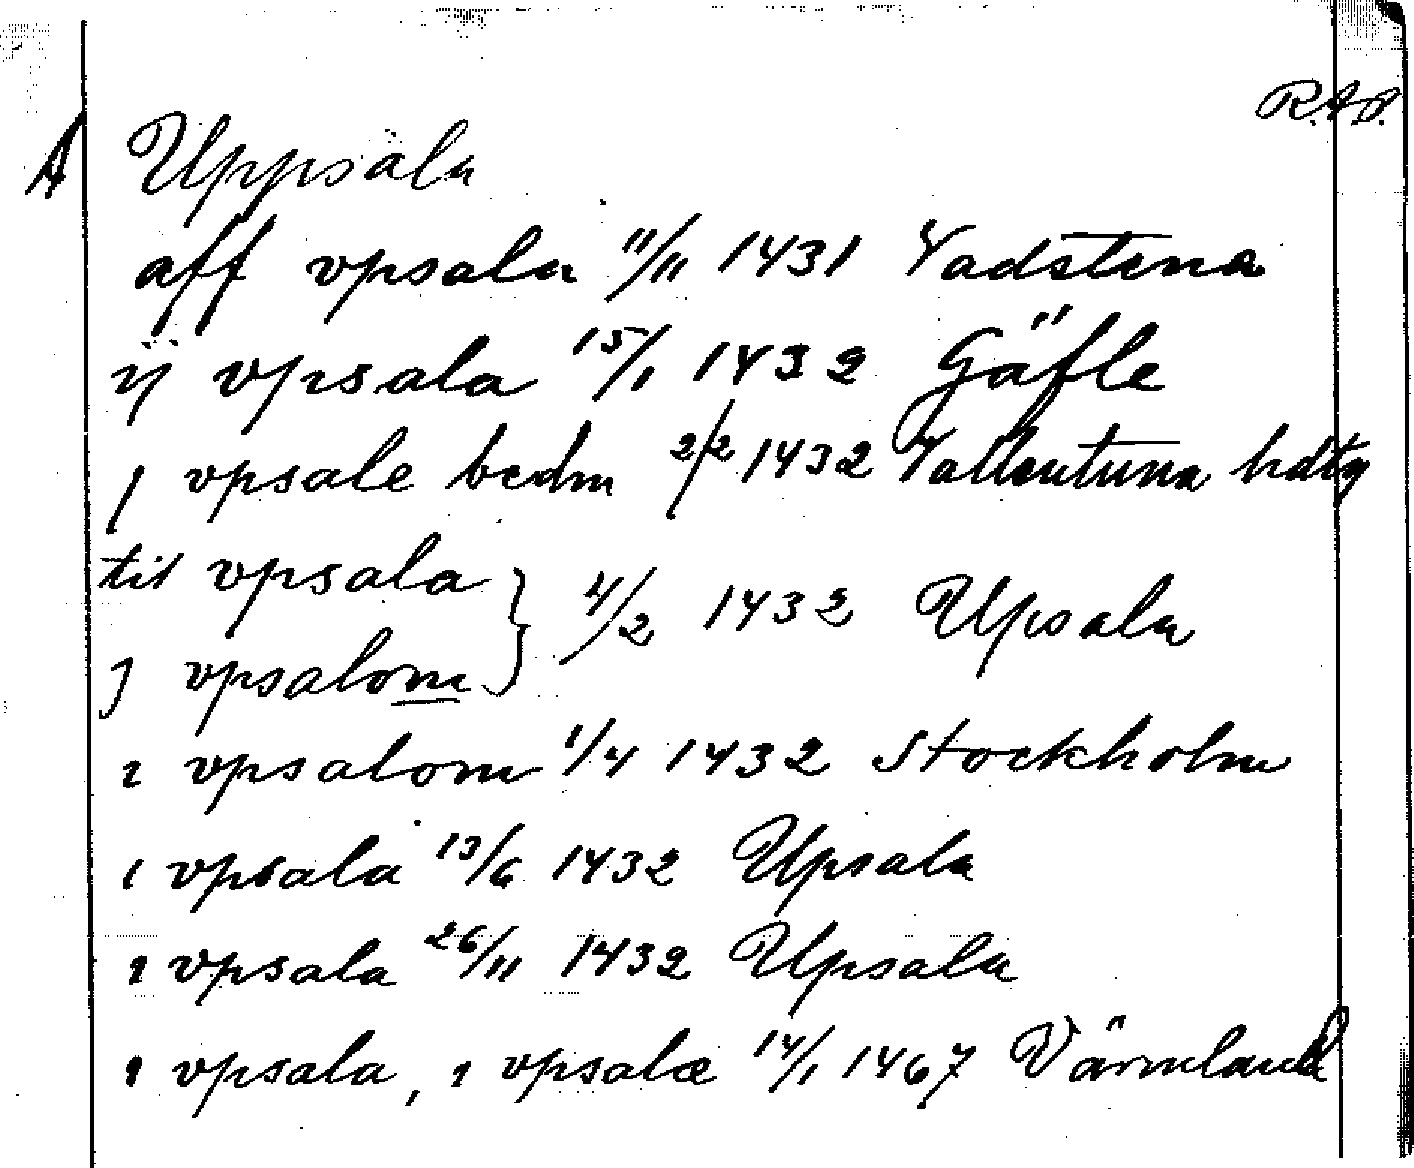 R.A.P.
A Uppsala
aff vpsala 11/11 1431 Vadstena
ij vpsala 15/1 1432 Gäfle
j vpsale bedm 2/2 1432 Vallentuna hdtg
til vpsala
j vpsalom } 4/2 1432 Upsala
i vpsalom 1/4 1432 Stockholm
i vpsala 13/6 1432 Upsala
i vpsala 26/11 1432 Upsala
i vpsala, i vpsalæ 14/1 1467 Värmland